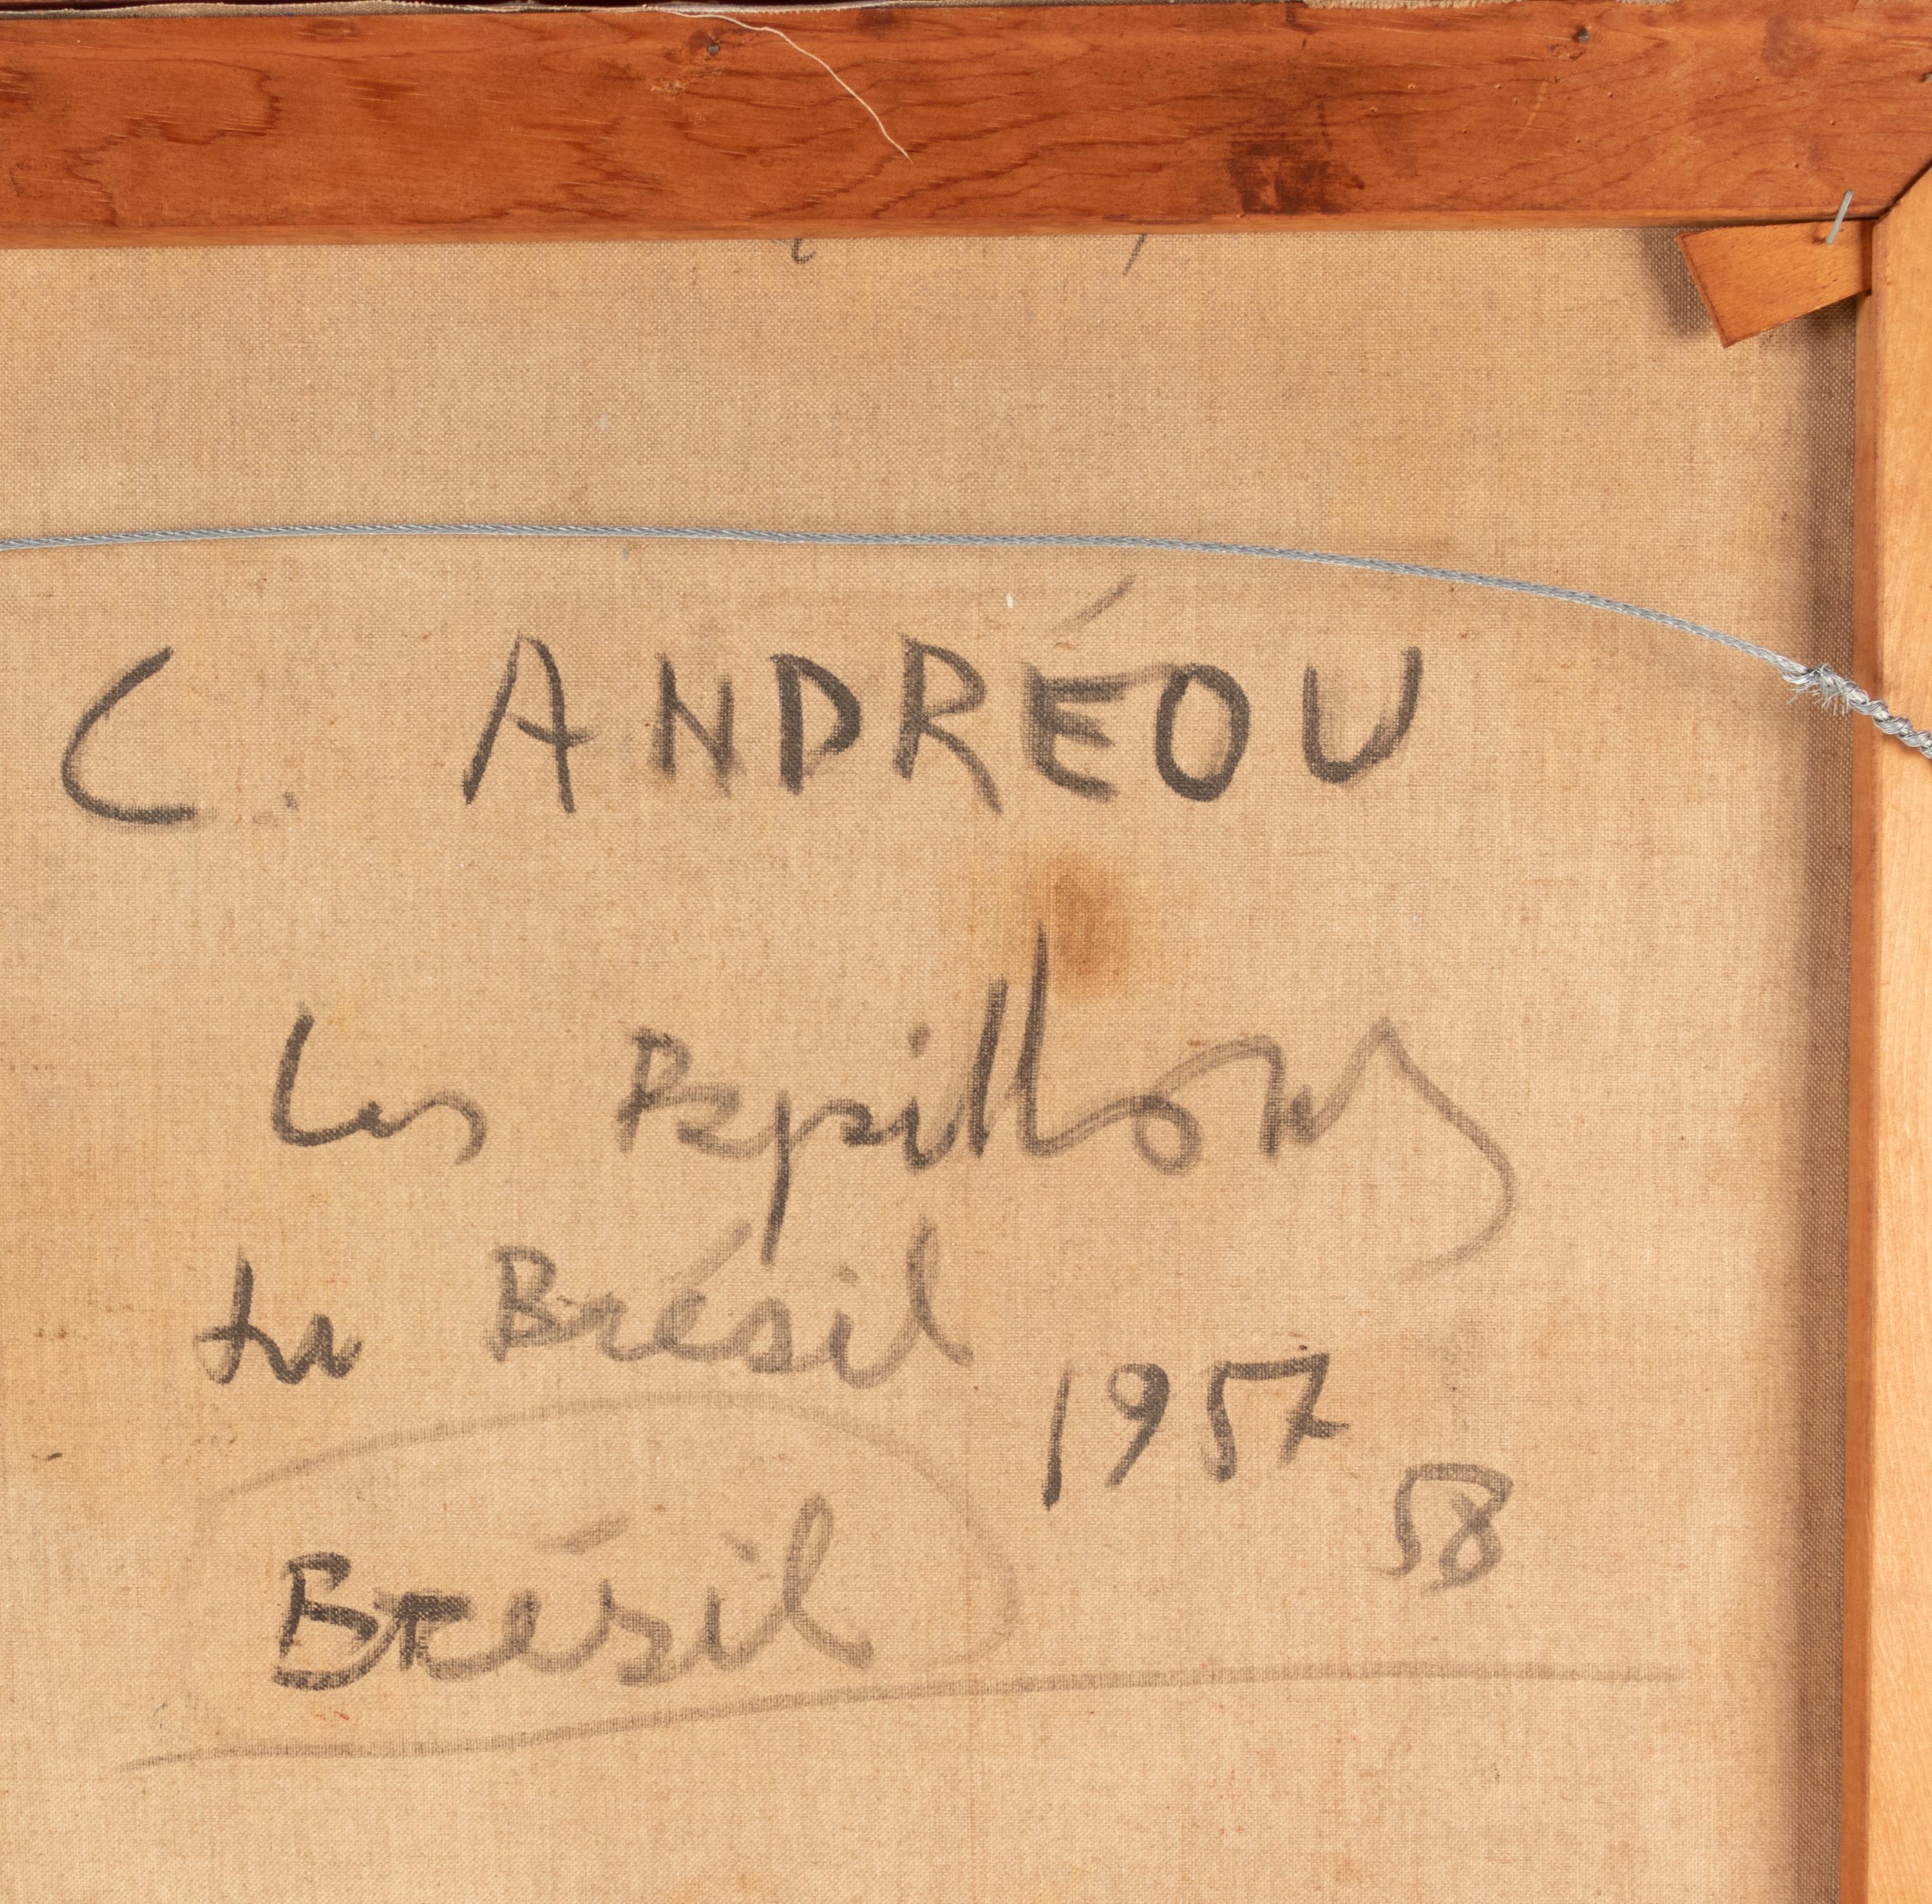 C. ANDRÉOU
Les Papillons
du Brésil
1957
58
Brésil